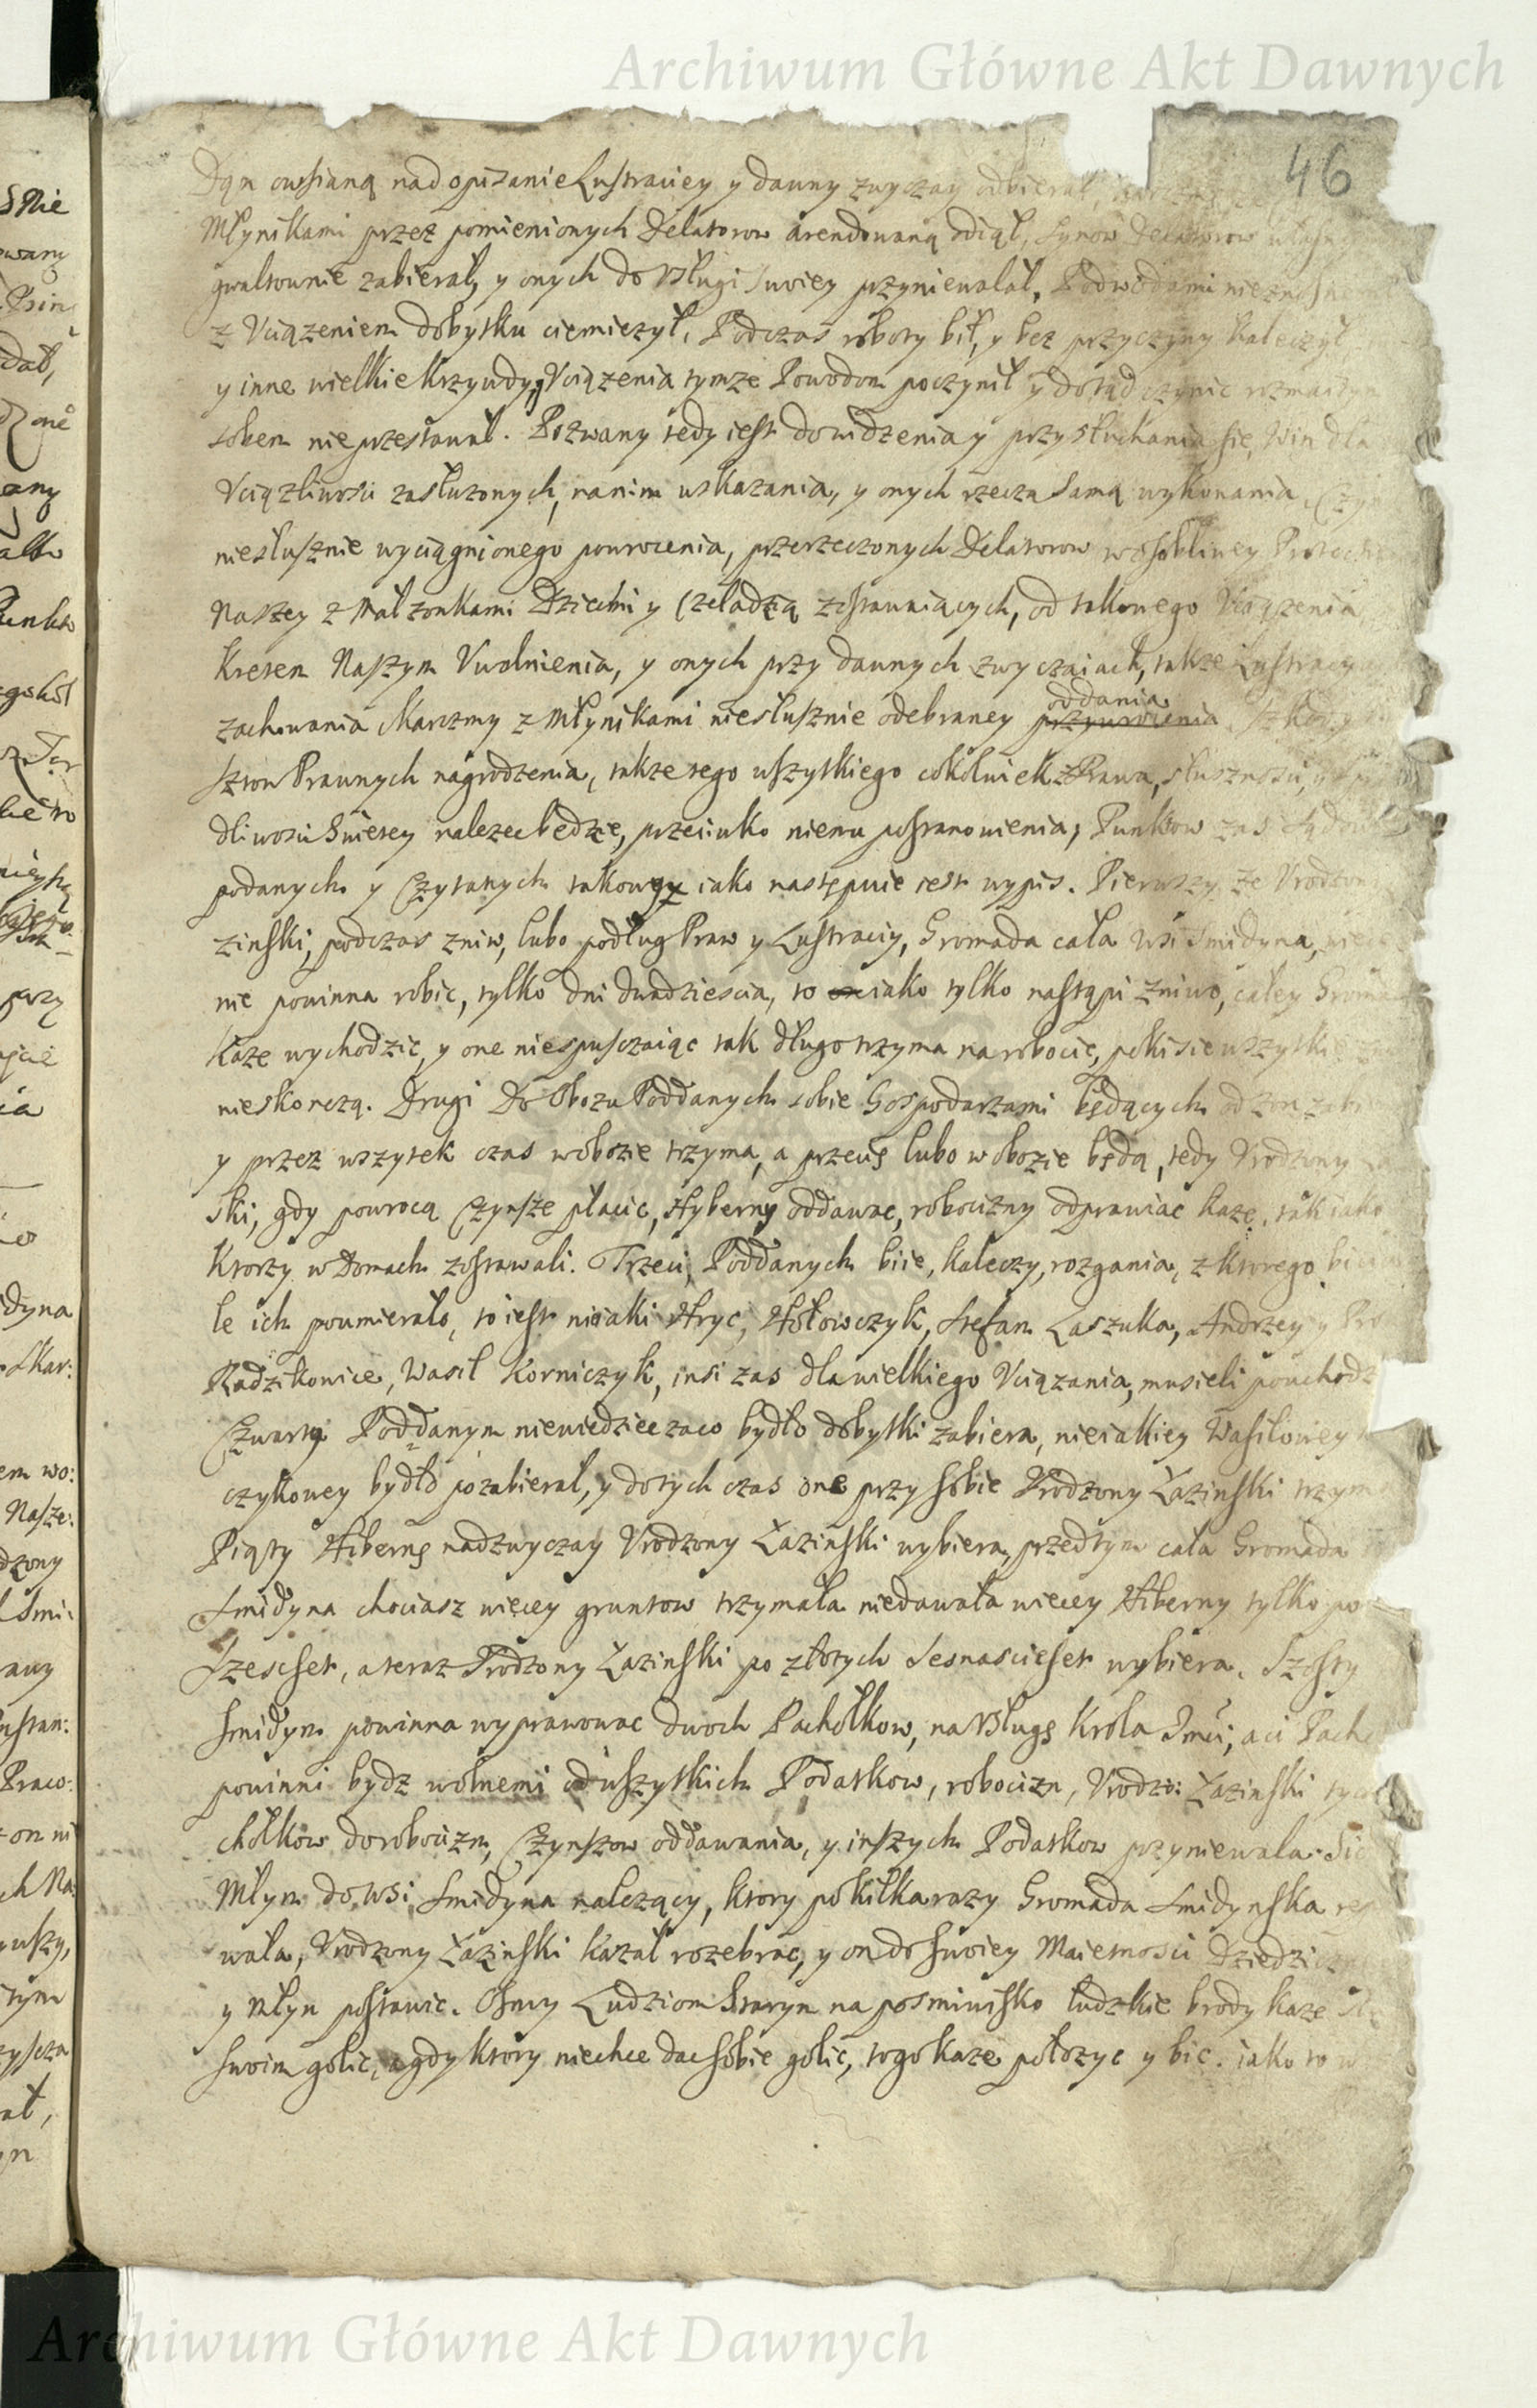 Archiwum Główne Akt Dawnych
46
Dąn owsianą nad opisanie Lustraciey y dawny zwyczay odbierał,
Młynikami przez pomienionych Delatorow arendowaną odiął, Synow Delatorow własnych
gwałtownie zabierał, y onych do Vsługi swoiey przyniewalał, Podwodami nieznosne
z Vciązeniem dobytku ciemiezył, Podczas roboty bił, y bez przyczyny kaleczył
y inne wielkie krzywdy, y Vciązenia tymze Powodom poczynił y dotąd czynic rozmaitym
sobem nieprzestawał. Pozwany tedy iest do widzenia y przysłuchania się, Win dla
Vciązliwosci zasłuzonych, nanim wskazania, y onych rzeczą samą wykonania,
niesłusznie wyciągnionego powrocenia, przerzeczonych Delatorow w osobliwey Protectiey
Naszey z Małzonkami Dziecmi y Czeladzią zostawaiących, od takowego Vciązenia
kretem Naszym Vwolnienia, y onych przy dawnych zwyczaiach, takze Lustracyach
zachowania Karczmy z Młynikami niesłusznie odebraney przywrocenia oddania Szkod y
sztow Prawnych nagrodzenia, takze tego wszytkiego cokolwiek z Prawa, słusznosci, y
dliwosci Swietey nalezec będzie, przeciwko niemu postanowienia, Punktow zas
podanych y Czytanych takowy iako następuie iest wypis. Pierwszy ze Vrodzony
zinski, podczas zniw, lubo podług Praw y Lustraciy, Gromada cała Wsi Smidyna,
nie powinna robic, tylko dni dwadziescia, to iako tylko nastąpi zniwo, całey Gromadzie
kaze wychodzic, y one niespuszczaiąc tak długo trzyma na robocie, poki sie wszytkie
nieskonczą. Drugi Do Obozu Poddanych sobie Gospodarzami będących od zon
y przez wszytek czas w obozie trzyma, a przecię lubo w obozie będą, tedy Vrodzony
ski, gdy powrocą Czynsze płacic, Hyberny oddawac, robocizny odprawiac kaze, tak iako
Ktorzy w Domach zostawali. Trzeci, Poddanych biie, kaleczy, rozgania, z ktorego bicia
le ich poumierało, to iest nieiaki Hryc, Hołowczyk, Stefan Laszuka, Andrzey y
Radzikowice, Wasil Korniczyk, insi zas dla wielkiego Vciązania, musieli pouchodz
Czwarty Poddanym niewiedziec zaco bydło dobytki zabiera, nieiakiey Wasilowey
czykowey bydło pozabierał, y dotych czas one przy sobie Vrodzony Łazinski trzyma
Piąty Hibernę nad zwyczay Vrodzony Łazinski wybiera, przedtym cała Gromada
Smidyna chociasz więcey gruntow trzymała niedawała więcey Hiberny tylko po
Szescset, a teraz Vrodzony Łazinski po złotych Sesnasciet wybiera. Szosty
Smidyn powinna wyprawowac dwoch Pachołkow, na Vsługę Krola Jmci, a ci Pach
powinni bydz wolnemi od wszytkich Podatkow, robocizn, Vrodzo: Łazinski tych
chołkow do robocizn, Czynszow oddawania, y inszych Podatkow przyniewala.
Młyn do wsi Smidyna nalezący, ktory po kilka razy Gromada Smidynska
wała, Vrodzony Łazinski kazał rozebrac, y on do swoiey Maietnosci Dziedziczney
y Młyn postawic. Osmy Ludziom Starym na posmiwisko ludzkie brody kaze
swoim golic, a gdy ktory niechce dac sobie golic, togo kaze połozyc y bic. iako to w
Archiwum Główne Akt Dawnych